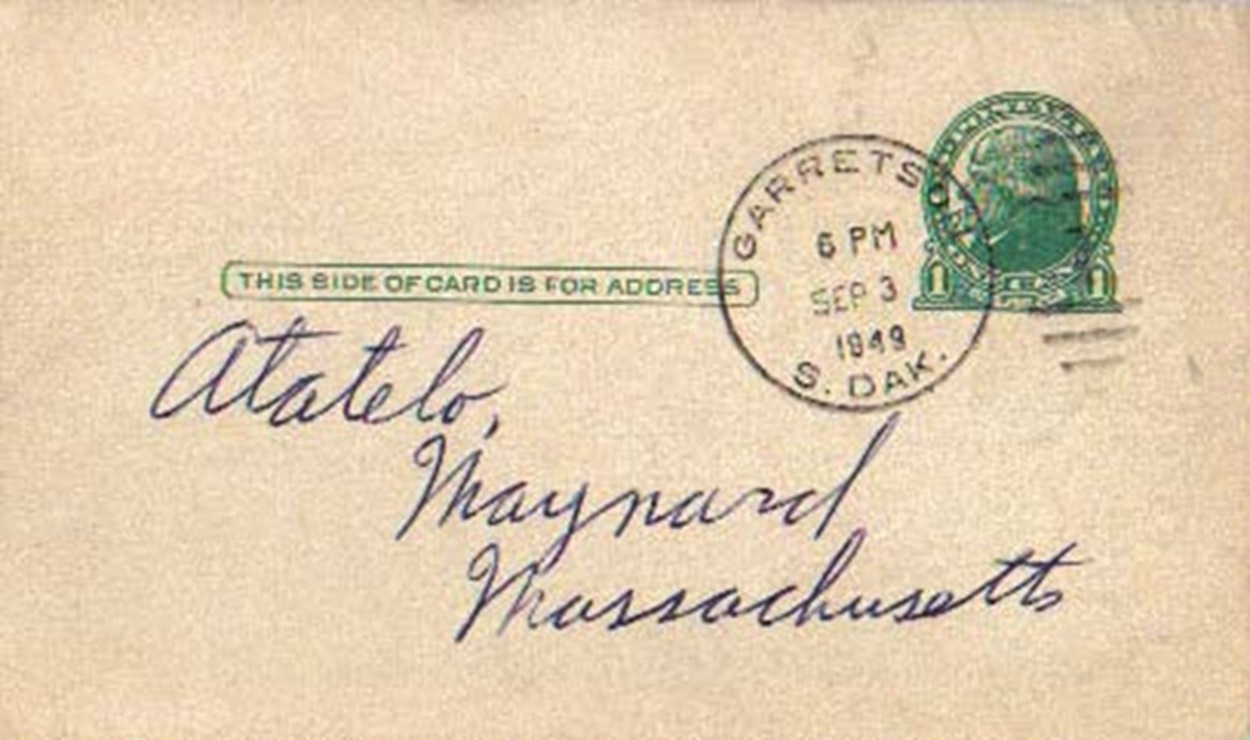 GARRETSON
6 PM
SEP 3
1949
S. DAK.
1 1
THIS SIDE OF CARD IS FOR ADDRESS
Atatelo,
Maynard
Massachusetts